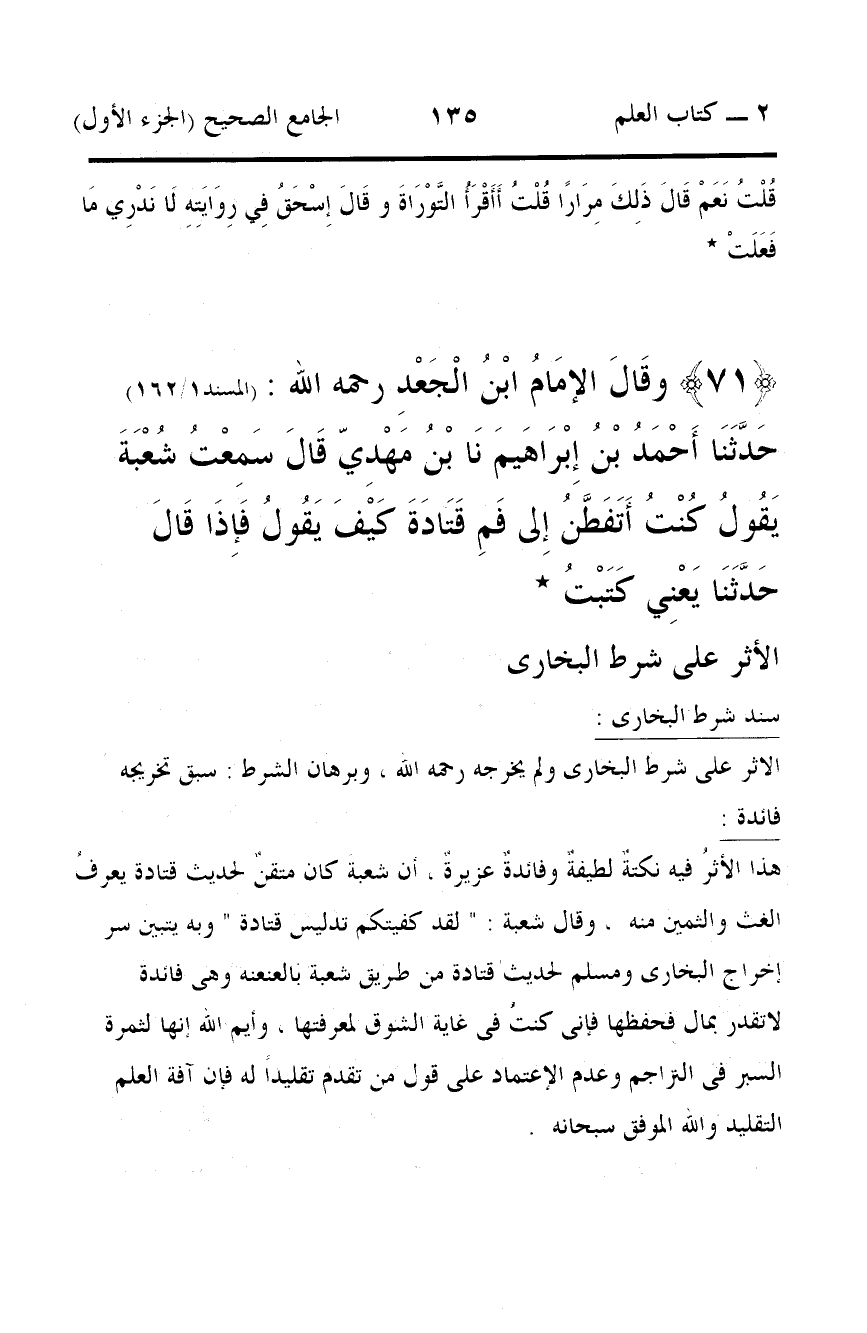 ٢ ــ كتاب العلم ١٣٥ الجامع الصحيح (الجزء الأول)
قُلْتُ نَعَمْ قَالَ ذَلِكَ مِرَارًا قُلْتُ أَأَقْرَأُ التَّوْرَاةَ و قَالَ إِسْحَقُ فِي رِوَايَتِهِ لَا نَدْرِي مَا
فَعَلَتْ *
﴿٧١﴾ وقَالَ الإمَامُ ابْنُ الْجَعْدِ رحمه الله : (المسند١٦٢/١)
حَدَّثَنَا أَحْمَدُ بْنُ إِبْرَاهِيمَ نَا بْنُ مَهْدِيّ قَالَ سَمِعْتُ شُعْبَةَ
يَقُولُ كُنْتُ أَتَفَطَّنُ إِلى فَمِ قَتَادَةَ كَيْفَ يَقُولُ فَإِذَا قَالَ
حَدَّثَنَا يَعْنِي كَتَبْتُ *
الأثر على شرط البخارى
سند شرط البخارى :
الاثر على شرط البخارى ولم يخرجه رحمه الله ، وبرهان الشرط : سبق تخريجه
فائدة :
هذا الأثرُ فيه نكتةٌ لطيفةٌ وفائدةٌ عزيرةٌ ، أن شعبة كان متقنٌ لحديث قتادة يعرفُ
الغث والثمين منه ، وقال شعبة : " لقد كفيتكم تدليس قتادة " وبه يتبين سر
إخراج البخارى ومسلم لحديث قتادة من طريق شعبة بالعنعنه وهى فائدة
لاتقدر بمال فحفظها فإنى كنتُ فى غاية الشوق لمعرفتها ، وأيم الله إنها لثمرة
السبر فى التراجم وعدم الإعتماد على قول من تقدم تقليداً له فإن آفة العلم
التقليد والله الموفق سبحانه .